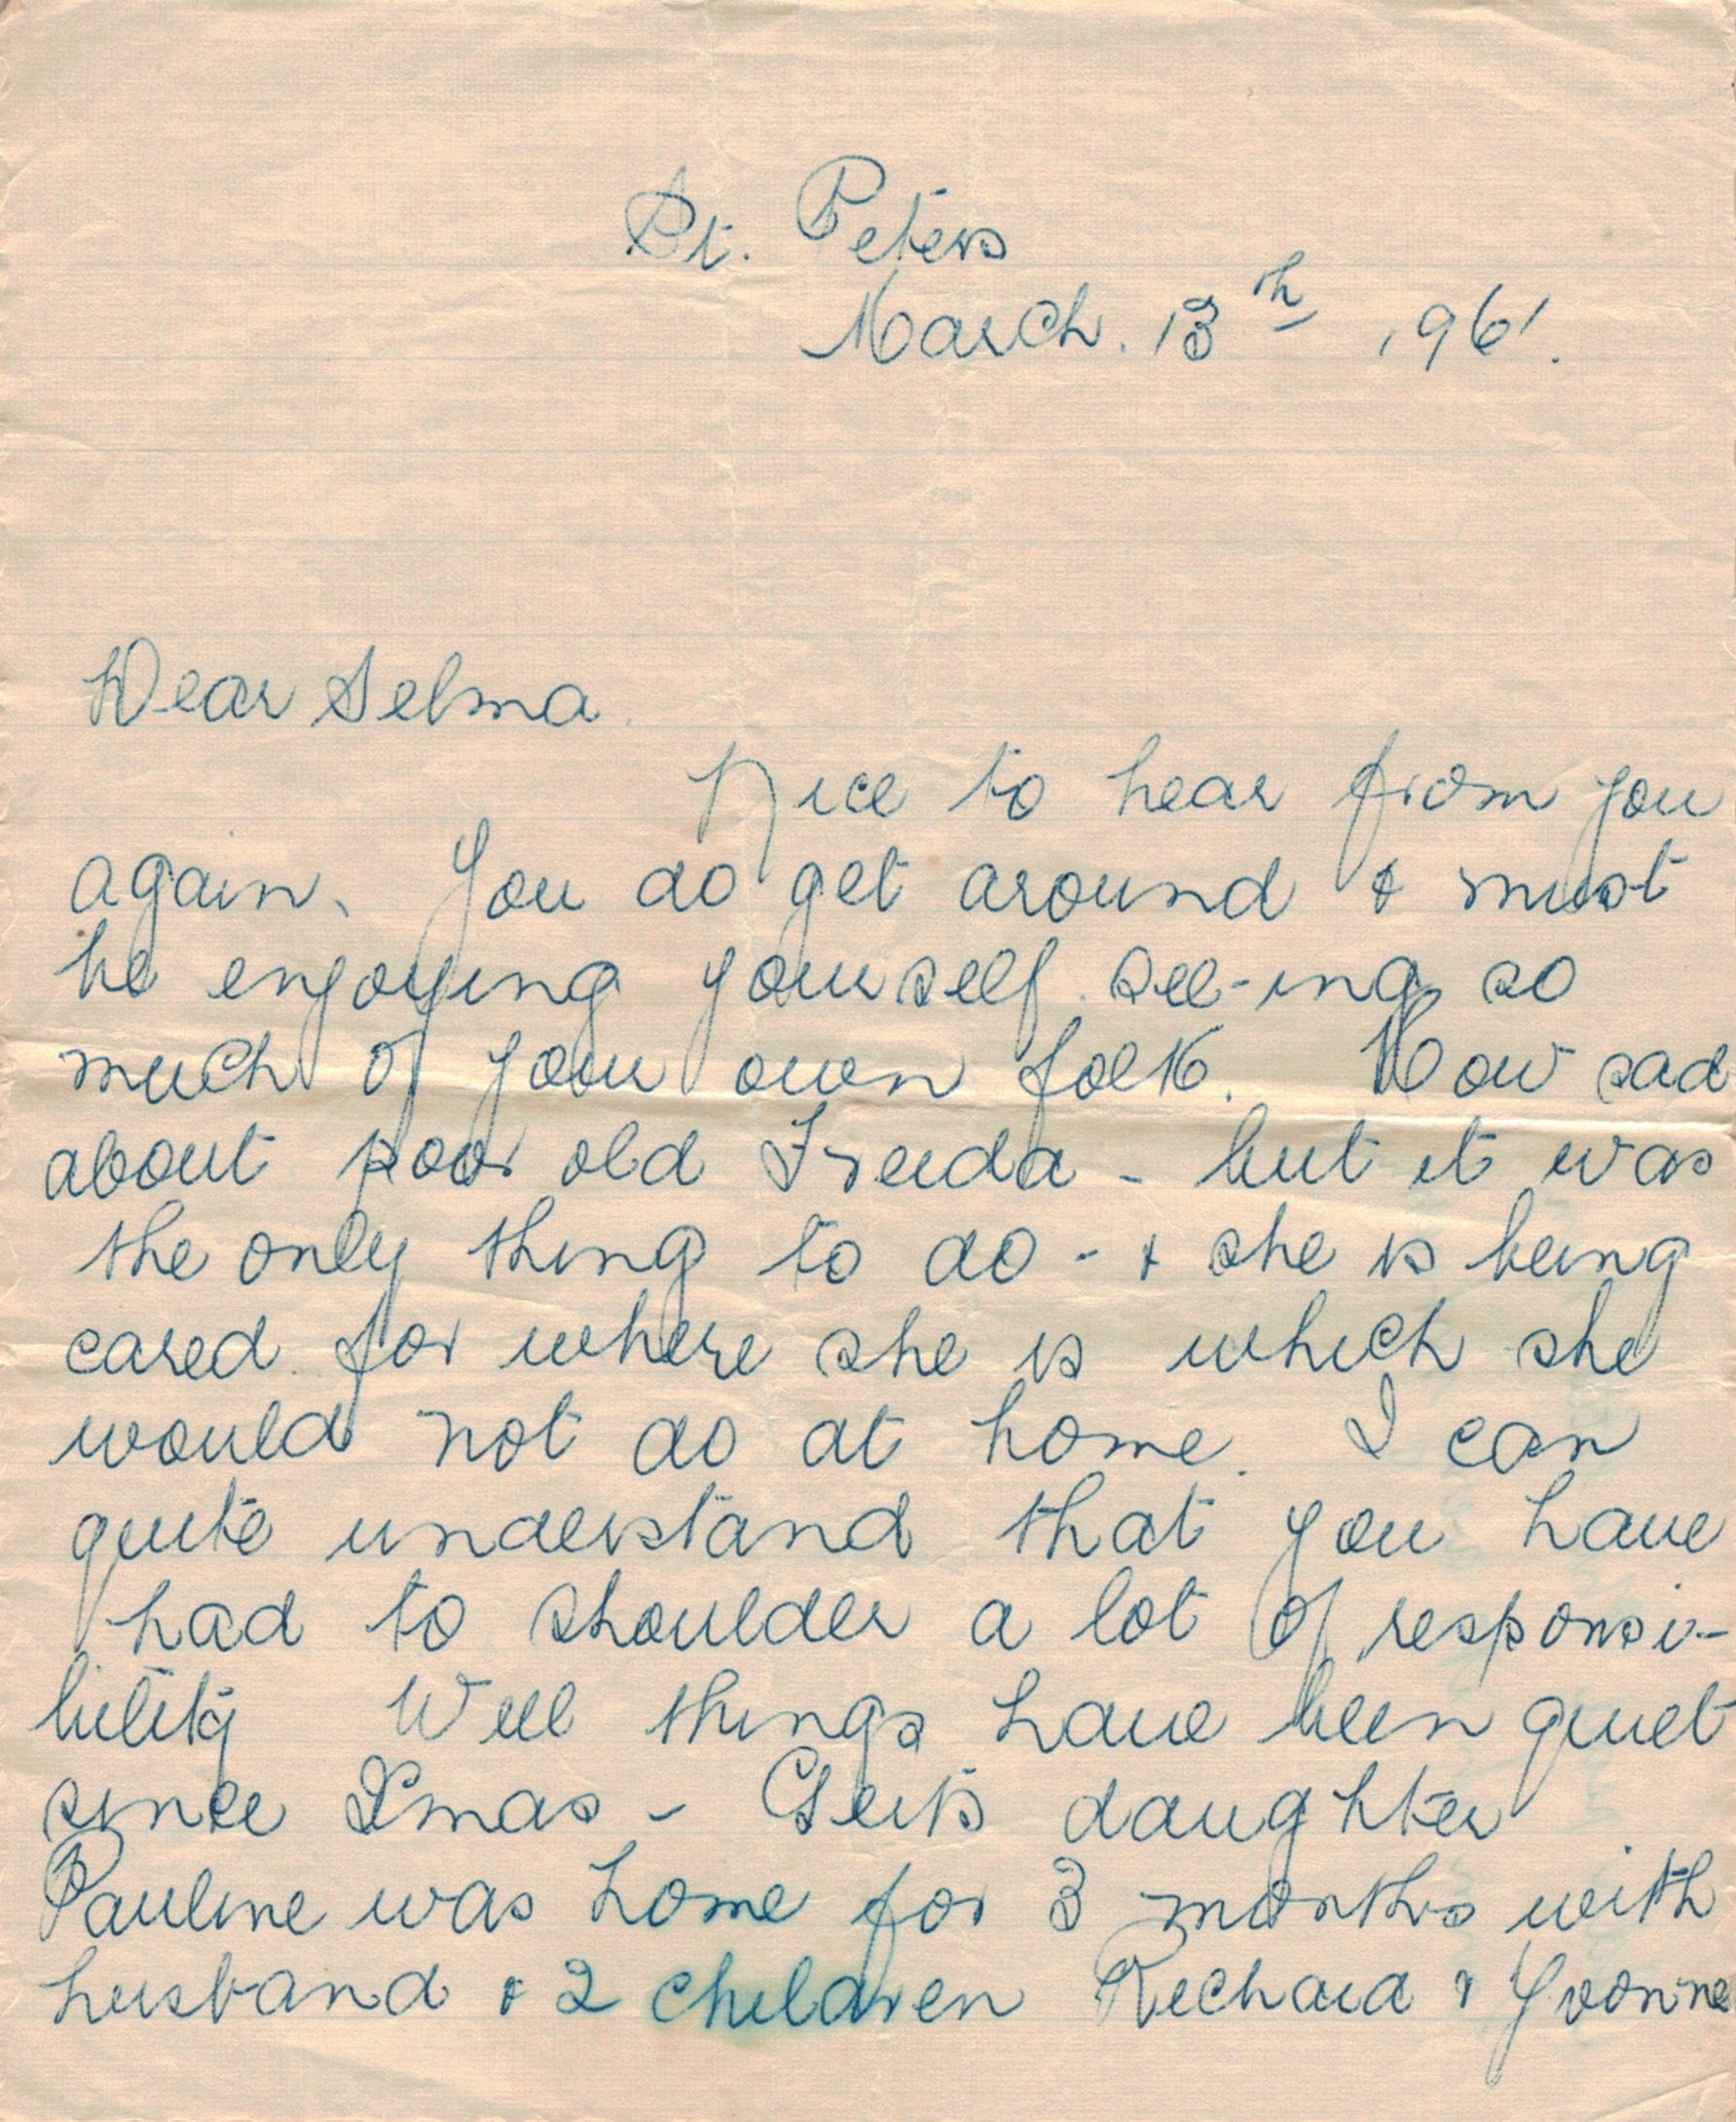 St. Peters
March. 13th 1961.
Dear Selma.
Nice to hear from you
again. You do get around & must
be enjoying yourself see-ing so
much of your own folk. How sad
about poor old Frieda - but it was
the only thing to do - & she is being
cared for where she is which she
would not do at home. I can
quite understand that you have
had to shoulder a lot of responsi-
bility Well things have been quiet
since Xmas - daughter
Pauline was home for 3 months with
husband & 2 children Richard & Yvonne